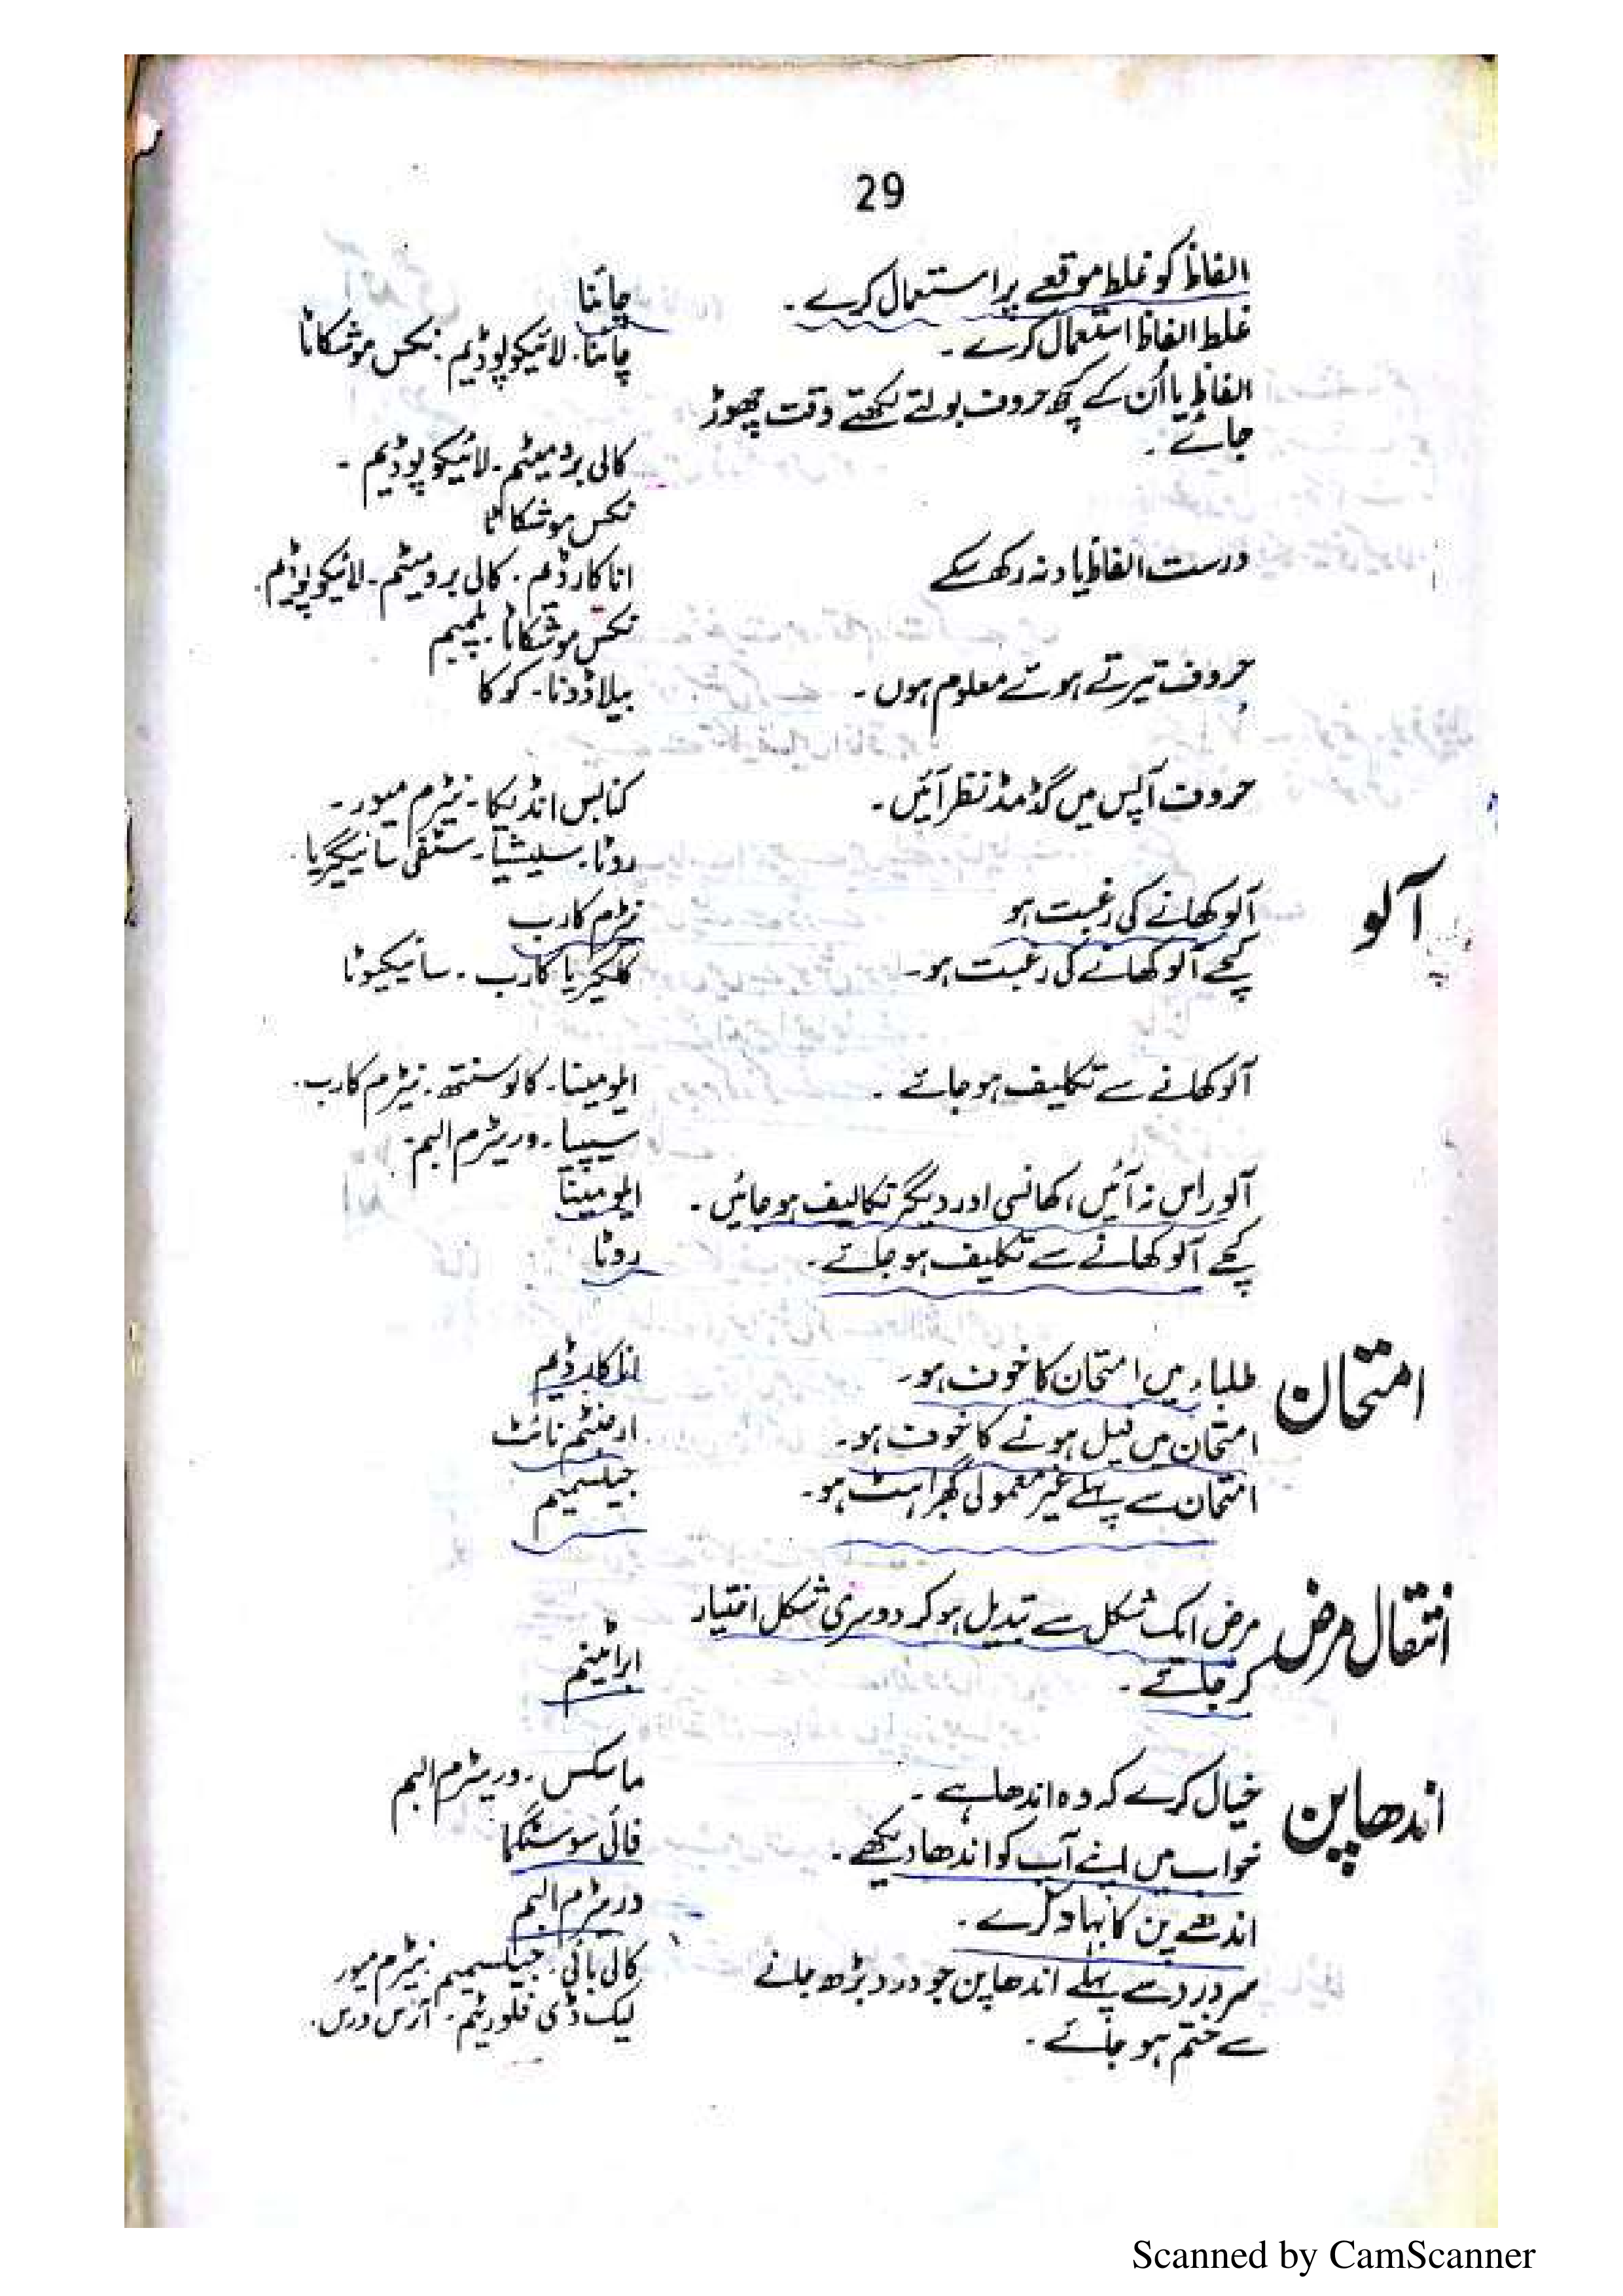 29
الفاظ کو غلط موقعے پر استعمال کرے ۔ چائنا
غلط الفاظ استعمال کرے ۔ چائنا۔ لائیکوپوڈیم۔ نکس موشکاٹا
الفاظ یا اُن کے کچھ حروف بولتے لکھتے وقت چھوڑ
جائے ۔ کالی برومیٹم۔ لائیکوپوڈیم ۔
نکس موشکاٹا
درست الفاظ یاد نہ رکھ سکے اناکارڈیم۔ کالی برومیٹم۔ لائیکوپوڈیم۔
نکس موشکاٹا۔ پلمبم
حروف تیرتے ہوئے معلوم ہوں ۔ بیلاڈونا۔ کوکا
حروف آپس میں گڈمڈ نظر آئیں ۔ کنابس انڈیکا۔ نیٹرم میور۔
روٹا۔ سلیشیا۔ سٹفی سائیگریا۔
آلو آلو کھانے کی رغبت ہو نیٹرم کارب
کچے آلو کھانے کی رغبت ہو۔ کلکیریا کارب۔ سائیکیوٹا
آلو کھانے سے تکلیف ہو جائے ۔ ایلومینا۔ کالوسنتھ۔ نیٹرم کارب۔
سیپیا۔ وریٹرم البم۔
آلو راس نہ آئیں، کھانسی اور دیگر تکالیف ہو جائیں ۔ ایلومینا
کچے آلو کھانے سے تکلیف ہو جائے ۔ روٹا
امتحان طلباء میں امتحان کا خوف ہو۔ اناکارڈیم
امتحان میں فیل ہونے کا خوف ہو۔ ارجنٹم نائٹ
امتحان سے پہلے غیر معمولی گھبراہٹ ہو۔ جیلسیمیم
انتقال مرض مرض ایک شکل سے تبدیل ہو کر دوسری شکل اختیار
کر جائے ۔ ابراٹینم
اندھاپن خیال کرے کہ وہ اندھا ہے ۔ ماسکس۔ وریٹرم البم
خواب میں اپنے آپ کو اندھا دیکھے ۔ فائی سوسٹگما
اندھے پن کا بہانہ کرے ۔ وریٹرم البم
سر درد سے پہلے اندھاپن جو درد بڑھ جانے کالی بائی۔ جیلسیمیم۔ نیٹرم میور
سے ختم ہو جائے ۔ لیک ڈی فلوریٹم۔ آئرس ورس۔
Scanned by CamScanner